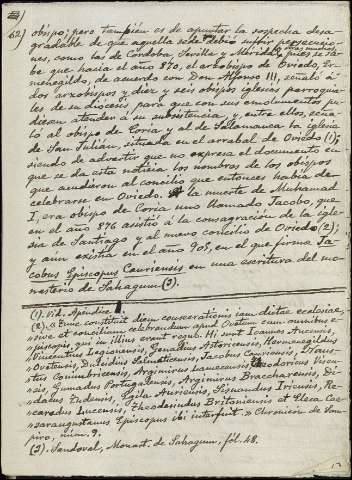 62) obispo; pero también es de apuntar la sospecha desa-
gradable de que aquella sede debió sufrir persecucio-
nes, como las de Córdoba, Sevilla y Mérida, pues se sa-
be que hacia el año 870, el arzobispo de Oviedo, Er-
menegildo, de acuerdo con Don Alfonso III, señaló á
dos arzobispos y diez y seis obispos iglesias parroquia-
les de su diócesis para que con sus emolumentos pu-
diesen atender á su subsistencia, y entre ellos, seña-
ló al obispo de Coria y al de Salamanca la iglesia
de San Julián, situada en el arrabal de Oviedo (1);
siendo de advertir que no expresa el documento en
que se da esta noticia los nombres de los obispos
que acudieron al concilio que entonces había de
celebrarse en Oviedo. A la muerte de Muhamad
I, era obispo de Coria uno llamado Jacobo, que
en el año 876 asistió á la consagración de la igle-
sia de Santiago y al nuevo concilio de Oviedo (2);
y aun existía en el año 905, en el que firma Ja-
cobus Episcopus Cauriensis en una escritura del mo-
nasterio de Sahagum (3).
(1). Vid. Apendice
(2). « Tunc constituit diem consecrationis iam dictae ecclesiae,
sive et concilium celebrandum apud Ovetum cum omnibus e-
piscopis, qui in illius erant regno. Hi sunt Ioannes Aucensis,
Vincentius Legionensis, Genadius Astoricensis, Hermenegildus
Ovetensis, Dulcidius Salmaticensis, Jacobus Cauriensis, Naus-
tus Conimbricensis, Argimirus Lamecensis, Theodorinus Viscen-
sis, Gumadus Portugalensis, Argimirus Bracharensis, Di-
dacus Tudensis, Egila Auriensis, Sisnandus Iriensis, Re-
caredus Lucensis, Theodesindus Britoniensis et Eleca Cae-
saraugustanus Episcopus ibi interfuit. » Chronicon de Sam-
piro, núm. 9.
(3). Sandoval, Monast. de Sahagum, fól. 48.